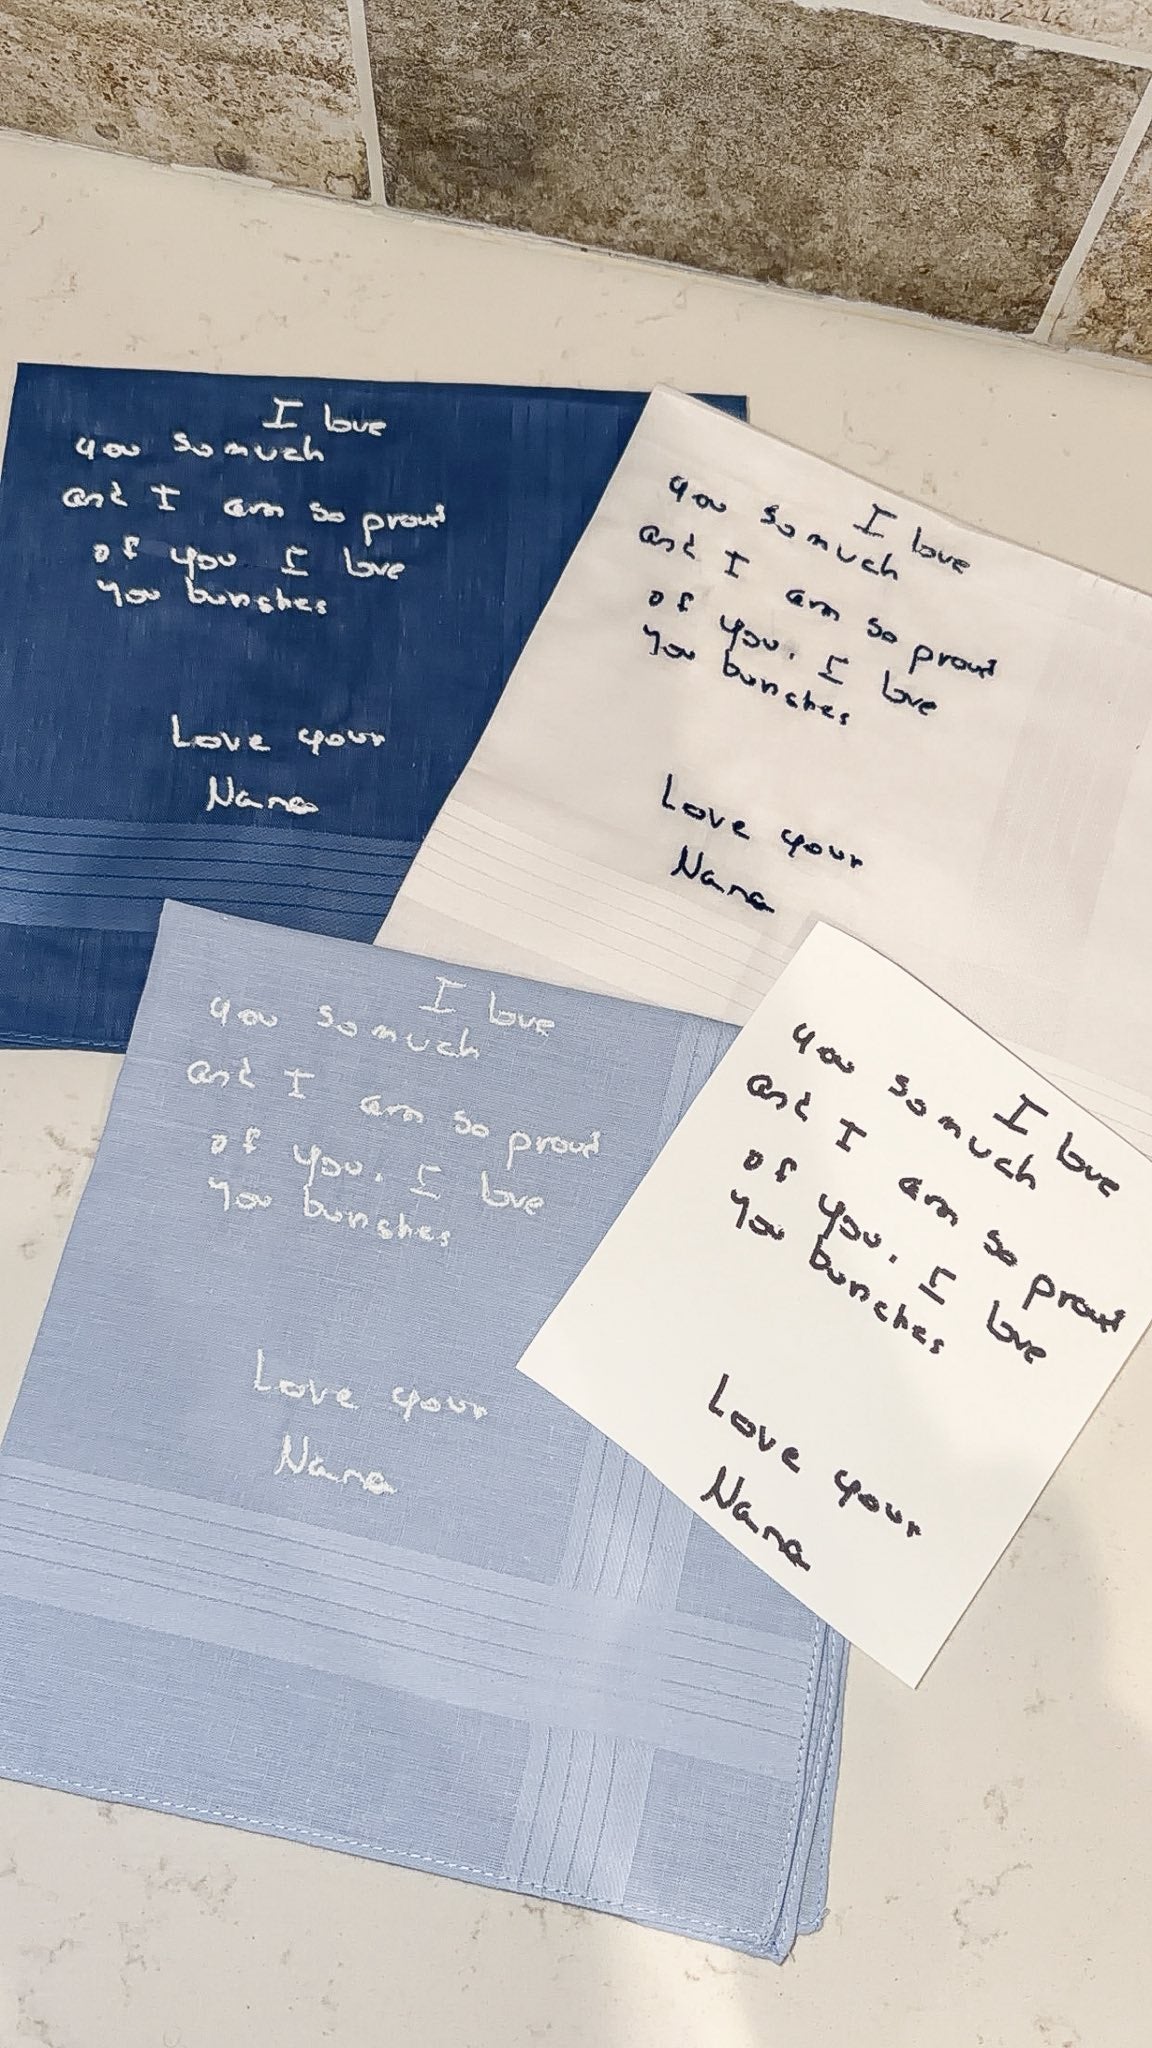 I love
you so much
and I am so proud
of you I love
you bunches
Love your
Nana
I love
you so much
and I am so proud
of you. I love
you bunches
Love your
Nana
I love
you so much
and I am so proud
of you. I love
you bunches
Love your
Nana
I love
you so much
and I am so proud
of you. I love
you bunches
Love your
Nana